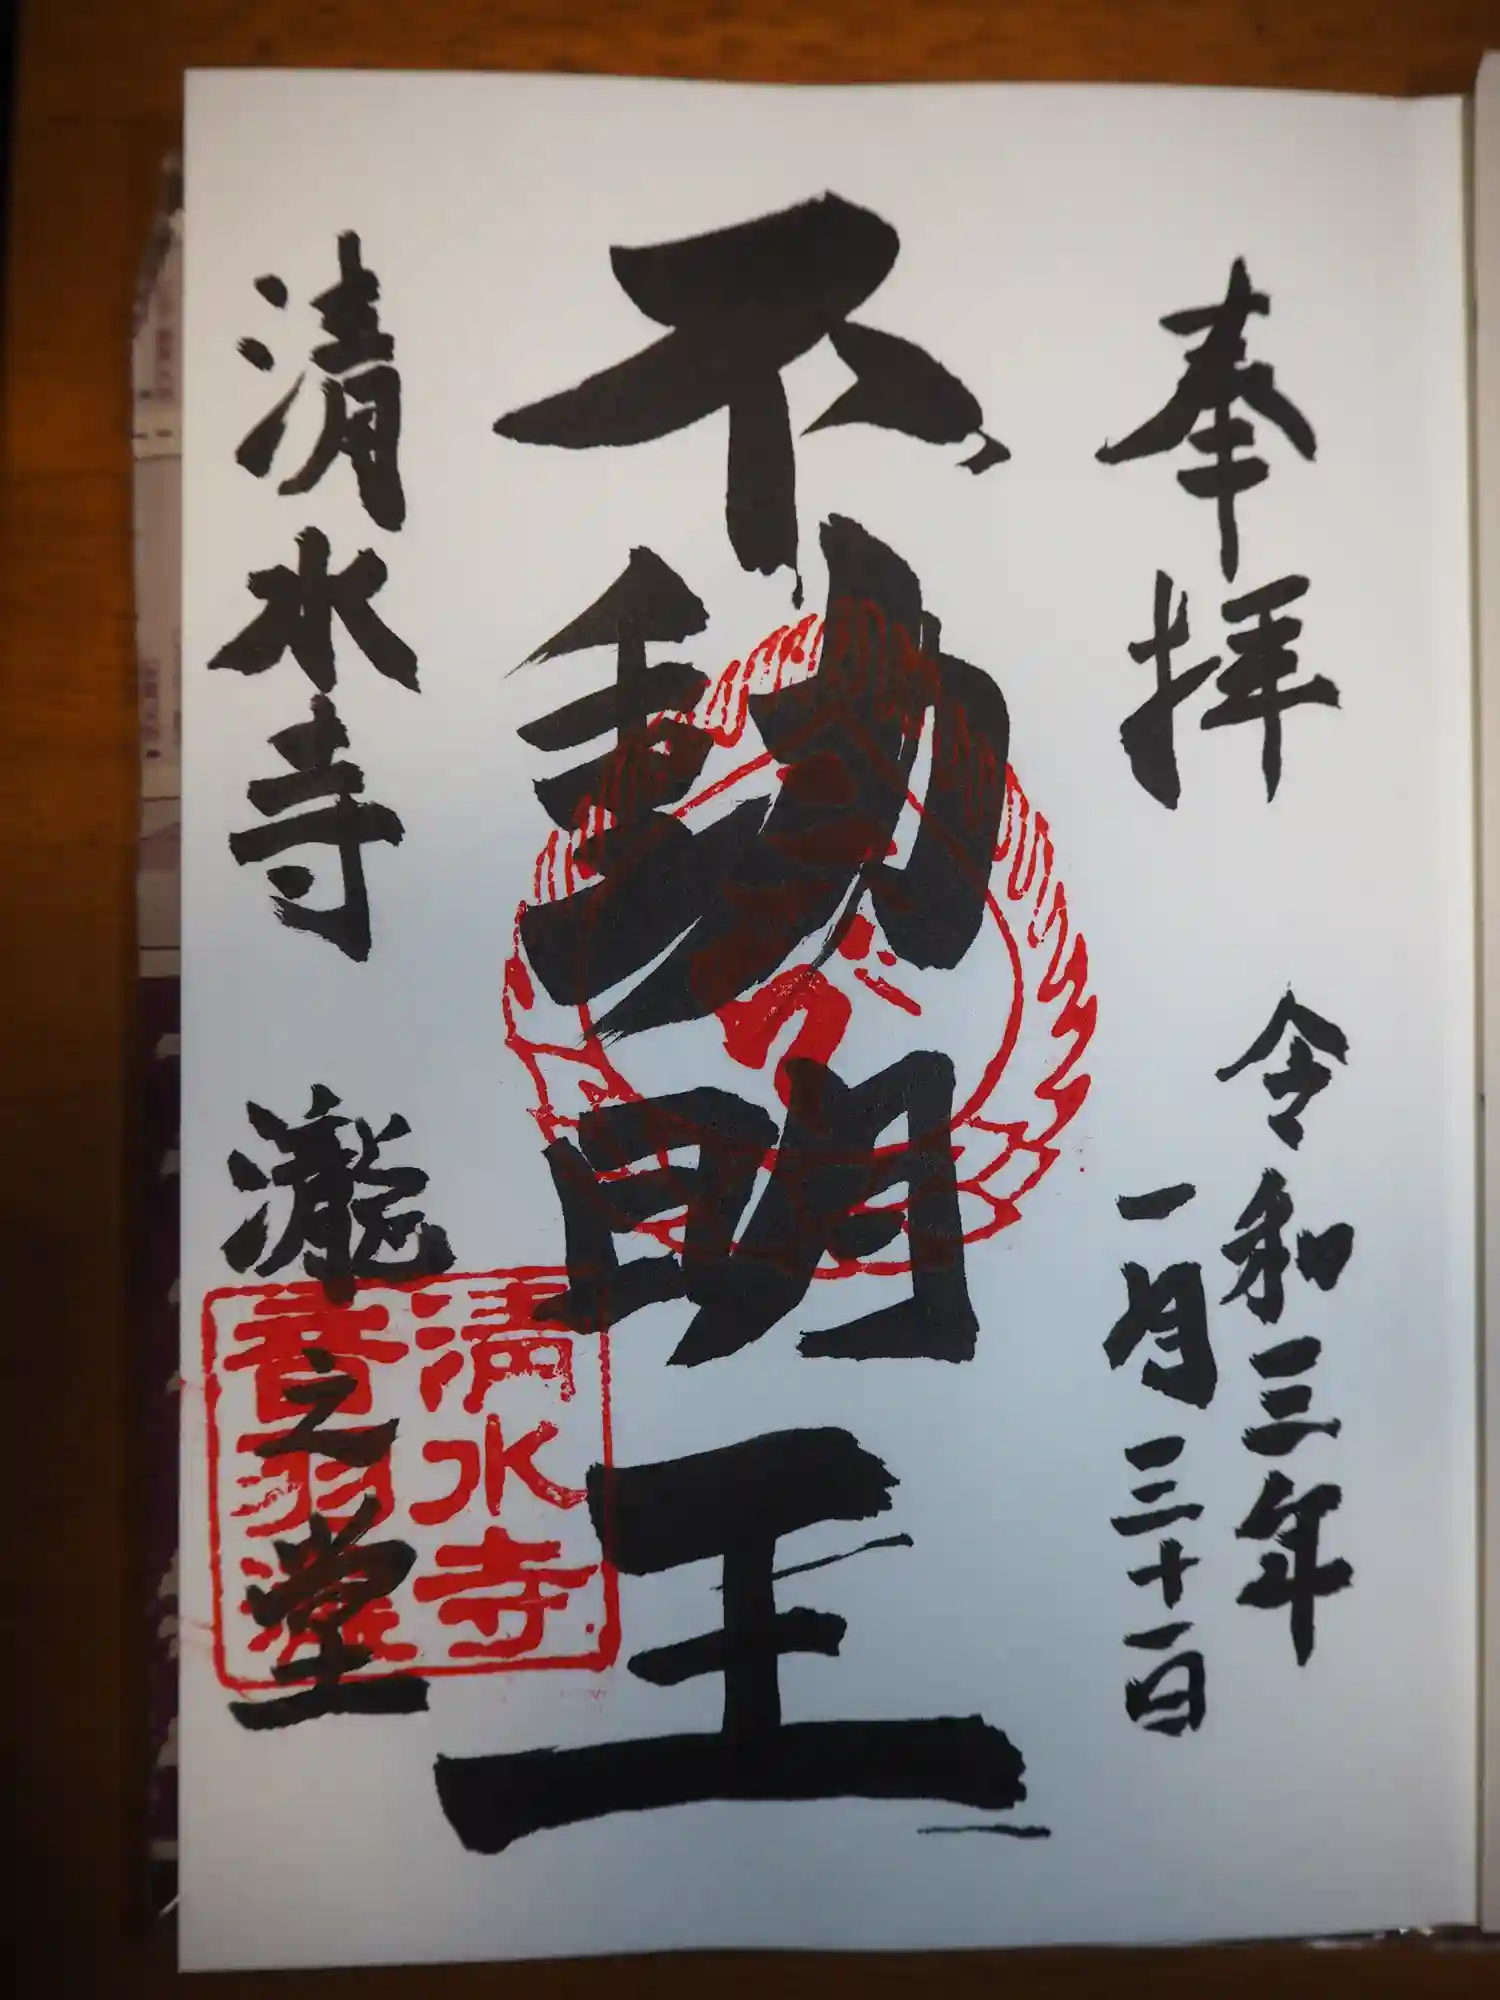 奉拝
令和三年
一月三十一日
不動明王
清水寺
瀧之堂
清水寺
音羽瀧